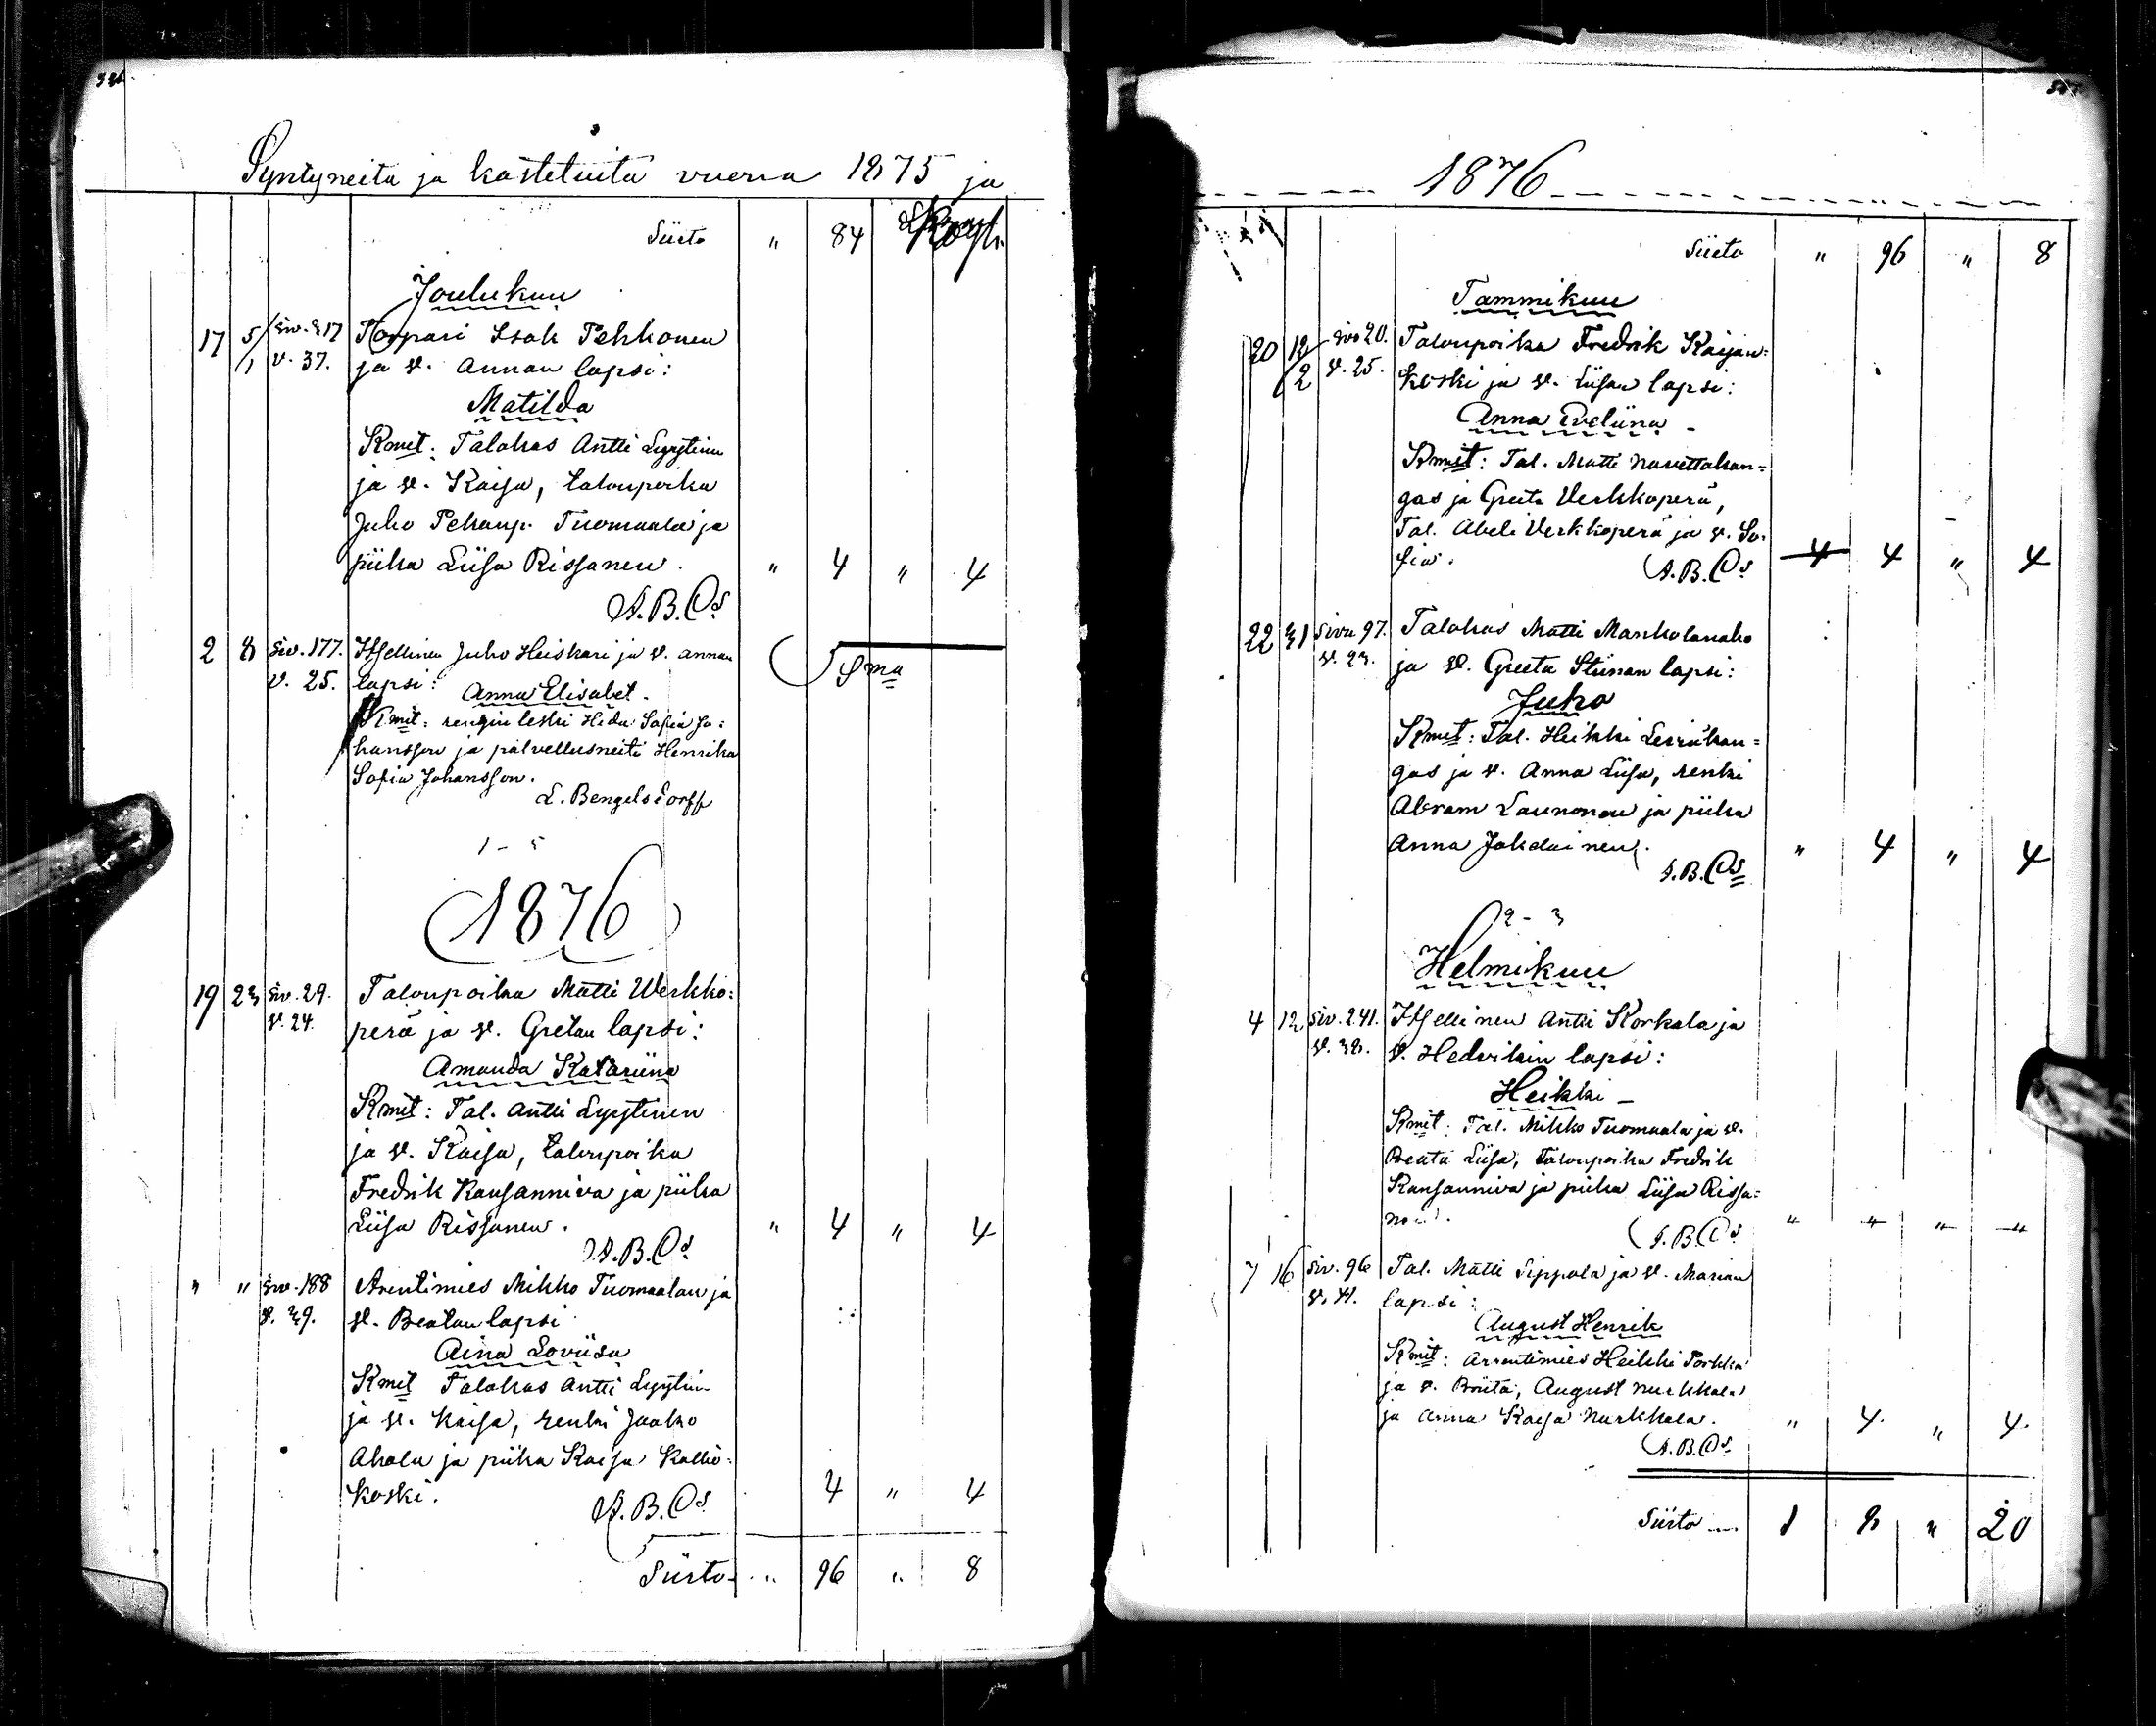 Syntyneitä ja kastetuita vuonna 1875 ja
Siirto " 84
Joulukuu
17 5/1 siv. 317 Torpari Isak Pehkonen
v. 37. ja v. Annan lapsi:
Matilda
Kmit: Talokas Antti Lyytinen
ja v. Kaisa, talonpoika
Juho Pehanp. Tuomaala ja
piika Liisa Rissanen. " 4 " 4
A.B.Cs
2 8 siv. 177. Itsellinen Juho Heiskari ja v. Annan
v. 25. lapsi: Anna Elisabet.
Kmit: rengin leski Hedv. Sofia Jo=
hansson ja palvellusneiti Henrika
Sofia Johansson.
L. Bengelsdorff
1 - 5
1876
19 23 siv. 29. Talonpoika Matti Werkko=
v. 24. perä ja v. Gretan lapsi:
Amanda Katariina
Kmit: Tal. Antti Lyytinen
ja v. Kaisa, talonpoika
Fredrik Kansanniva ja piika
Liisa Rissanen. " 4 " 4
A.B.Cs
" " siv. 188 Arentimies Mikko Tuomaalan ja
v. 39. v. Beatan lapsi
Aina Loviisa
Kmit Talokas Antti Lyytin.
ja v. Kaisa, renki Jaako
Ahola ja piika Kaisa Kallio=
koski. 4 " 4
A.B.Cs
Siirto " 96 " 8
1876
Siirto " 96 " 8
Tammikuu
20 12/2 siv 20. Talonpoika Fredrik Kaijan=
v. 25. koski ja v. Liisan lapsi:
Anna Eveliina -
Kmit: Tal. Matti Navettakan=
gas ja Greeta Verkkoperä,
Tal. Abeli Verkkoperä ja v. So=
fia. 4 4 " 4
A.B.Cs
22 31 sivu 97. Talokas Matti Mankolanaho
v. 23. ja v. Greeta Stiinan lapsi:
Juho
Kmit: Tal. Heikki Leiväkan=
gas ja v. Anna Liisa, renki
Abram Launonen ja piika
Anna Jakolainen. " 4 " 4
A.B.Cs
2 - 3
Helmikuu
4 12 siv. 241. Itsellinen Antti Korkala ja
v. 38. v. Hedvikin lapsi:
Heikki -
Kmit: Tal. Mikko Tuomaala ja v.
Beata Liisa, Talonpoika Fredrik
Kansanniva ja piika Liisa Rissa=
nen. " " " "
A.B.Cs
7 16 siv. 96 Tal. Matti Sippola ja v. Marian
v. 41. lapsi:
August Henrik
Kmit: Arrentimies Heikki Porkka
ja v. Briita, August Nurkkala
ja Anna Kaisa Nurkkala. " 4. " 4.
A.B.Cs
Siirto 1 8 " 20